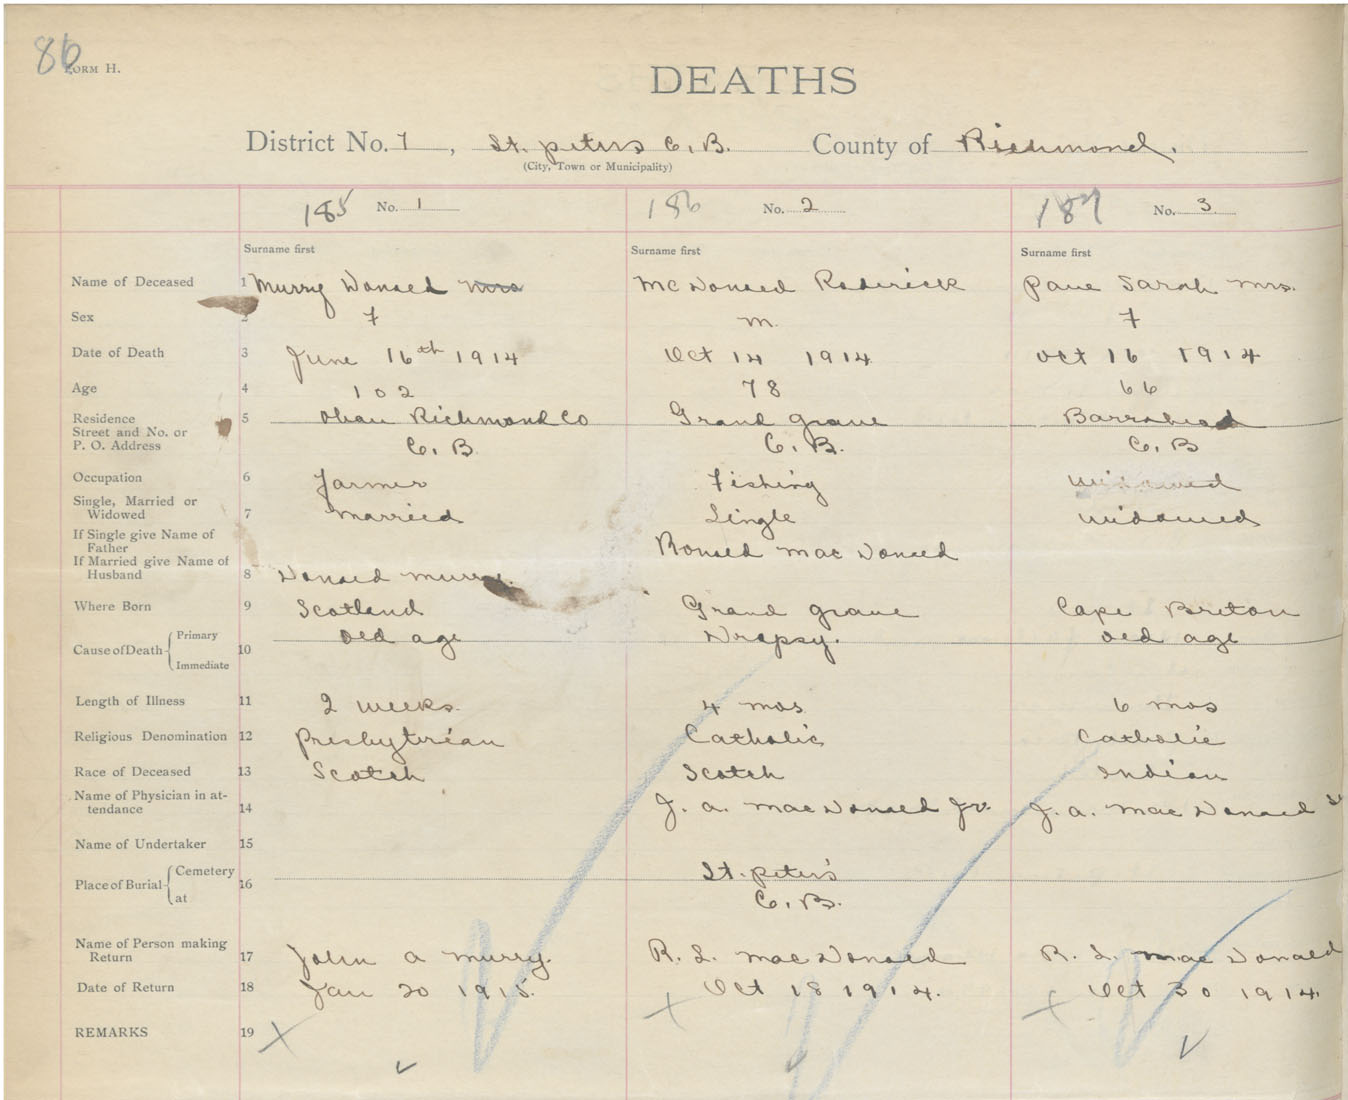 86
FORM H.
DEATHS
District No. 7, St. peters C. B. County of Richmond.
(City, Town or Municipality)
185 No. 1 186 No. 2 187 No. 3
Surname first Surname first Surname first
Name of Deceased 1 Murry Donald Mrs McDonald Roderick Paul Sarah Mrs.
Sex 2 F M. F
Date of Death 3 June 16th 1914 Oct 14 1914 Oct 16 1914
Age 4 102 78 66
Residence 5 Richmond Co Grand grave Barrahead
Street and No. or
P. O. Address C. B. C. B. C. B
Occupation 6 Farmer Fishing widowed
Single, Married or
Widowed 7 Married Single widowed
If Single give Name of
Father Ronald Mac Donald
If Married give Name of
Husband 8 Donald Murry.
Where Born 9 Scotland Grand grave Cape Breton
Cause of Death Primary old age Dropsy. old age
10
Immediate
Length of Illness 11 2 weeks. 4 mos 6 mos
Religious Denomination 12 presbyterian Catholic Catholic
Race of Deceased 13 Scotch Scotch Indian
Name of Physician in at-
tendance 14 J. A. MacDonald Jr. J. A. MacDonald
Name of Undertaker 15
Place of Burial Cemetery 16 St. peter's
at C. B.
Name of Person making
Return 17 John A Murry. R. L. MacDonald R. L. MacDonald
Date of Return 18 Jan 20 1915. Oct 18 1914. Oct 30 1914
REMARKS 19